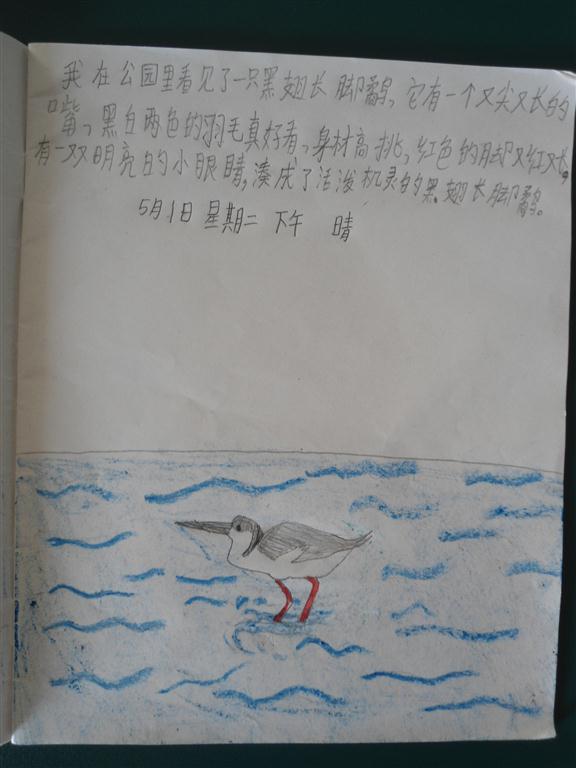 我在公园里看见了一只黑翅长脚鹬，它有一个又尖又长的
嘴，黑白两色的羽毛真好看，身材高挑，红色的脚又红又长，
有一双明亮的小眼睛，凑成了活泼机灵的黑翅长脚鹬。
5月1日 星期二 下午 晴